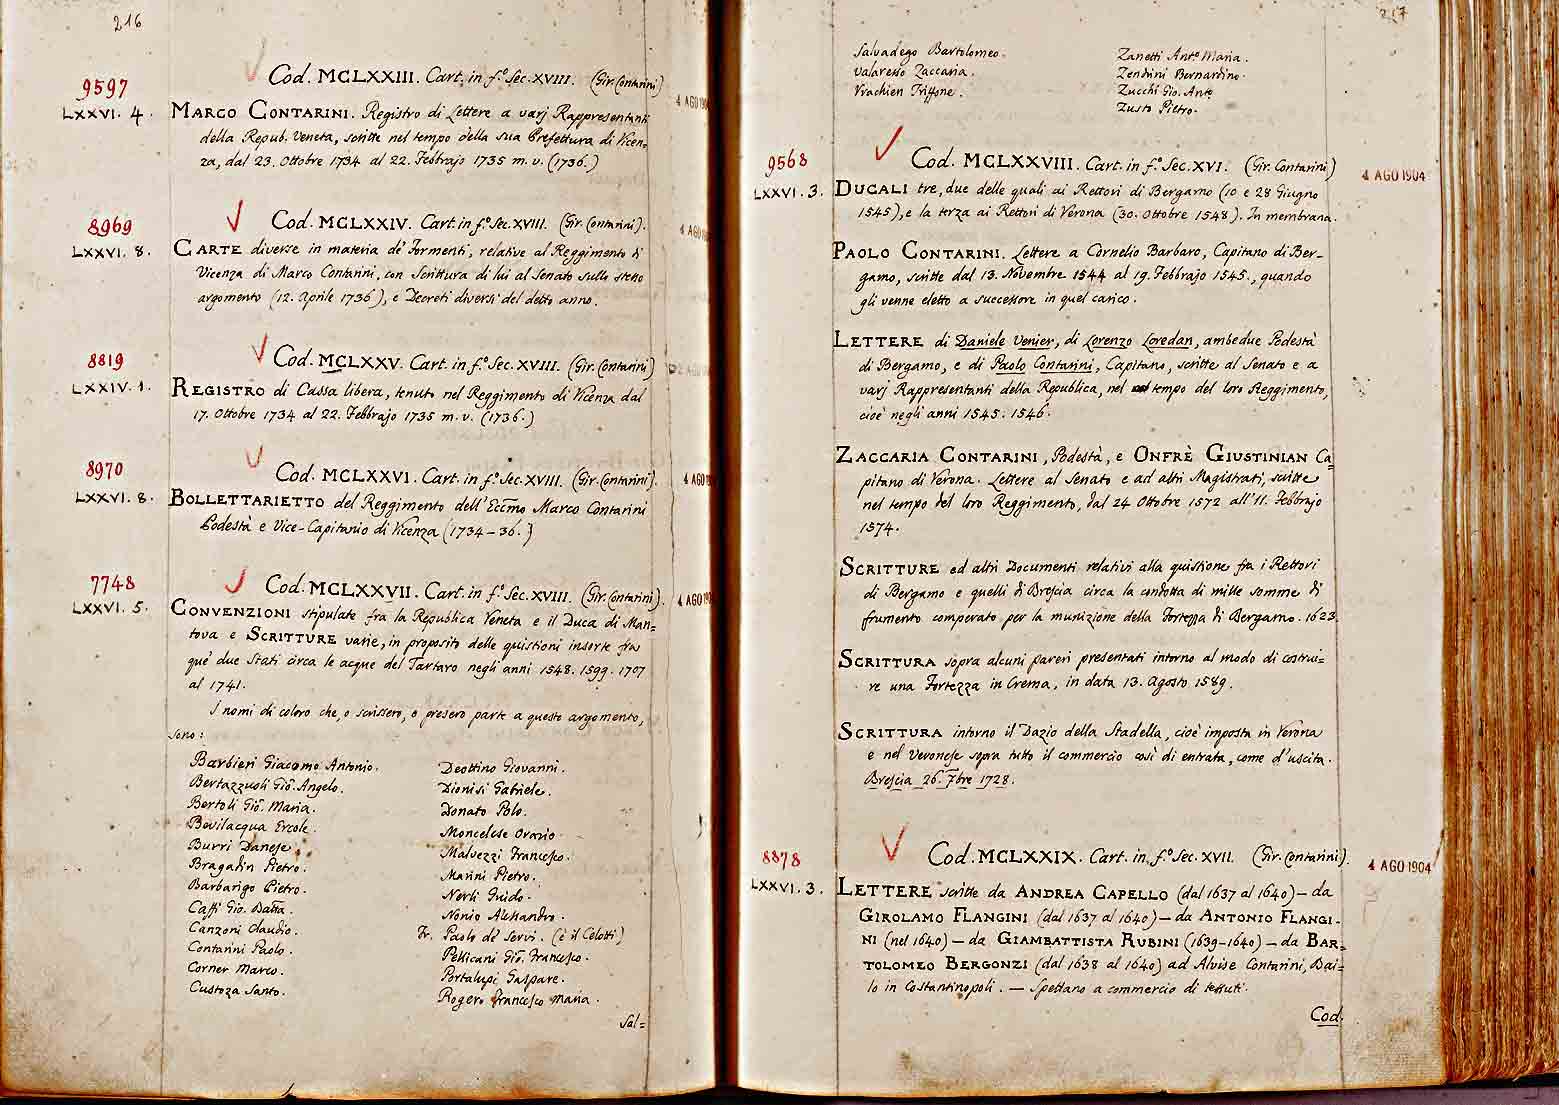 216
9597
LXXVI. 4.
Cod. MCLXXIII. Cart. in f.º Sec. XVIII. (Gir. Contarini)
4 AGO 190
MARCO CONTARINI. Registro di Lettere a varj Rappresentanti
della Repub. Veneta, scritte nel tempo della sua Prefettura di Vicen=
za, dal 23. Ottobre 1734 al 22. Febbrajo 1735 m. v. (1736.)
8969
LXXVI. 8.
Cod. MCLXXIV. Cart. in f.º Sec. XVIII. (Gir. Contarini).
4 AGO
CARTE diverse in materia de' Formenti, relative al Reggimento di
Vicenza di Marco Contarini, con Scrittura di lui al Senato sullo stesso
argomento (12. Aprile 1736), e Decreti diversi del detto anno.
8819
LXXIV. 1.
Cod. MCLXXV. Cart. in f.º Sec. XVIII. (Gir. Contarini)
REGISTRO di Cassa libera, tenuto nel Reggimento di Vicenza dal
17. Ottobre 1734 al 22. Febbrajo 1735 m. v. (1736.)
8970
LXXVI. 8.
Cod. MCLXXVI. Cart. in f.º Sec. XVIII. (Gir. Contarini).
4 AGO
BOLLETTARIETTO del Reggimento dell'Eccmo Marco Contarini
Podestà e Vice-Capitanio di Vicenza (1734-36.)
7748
LXXVI. 5.
Cod. MCLXXVII. Cart. in f.º Sec. XVIII. (Gir. Contarini).
4 AGO 190
CONVENZIONI stipulate fra la Republica Veneta e il Duca di Man=
tova e SCRITTURE varie, in proposito delle quistioni insorte fra
que' due Stati circa le acque del Tartaro negli anni 1548. 1599. 1707
al 1741.
I nomi di coloro che, o scrissero, o presero parte a questo argomento,
sono:
Barbieri Giacomo Antonio.
Bertazzuoli Gio. Angelo.
Bertoli Gio. Maria.
Bevilacqua Ercole.
Burri Danese.
Bragadin Pietro.
Barbarigo Pietro.
Caffi Gio. Batta.
Canzoni Claudio.
Contarini Paolo.
Corner Marco.
Custoza Santo.
Deottino Giovanni.
Dionisi Gabriele.
Donato Polo.
Moncelese Orazio.
Malvezzi Francesco.
Marini Pietro.
Nerli Guido.
Nonio Alessandro.
Fr. Paolo de' Servi. (è il Celotti)
Pellicani Gio. Francesco.
Portalupi Gaspare.
Rogero Francesco Maria.
Sal=
217
Salvadego Bartolomeo.
Valaresso Zaccaria.
Vrachien Triffone.
Zanetti Antº Maria.
Zendrini Bernardino.
Zucchi Gio. Antº
Zusto Pietro.
9568
LXXVI. 3.
Cod. MCLXXVIII. Cart. in f.º Sec. XVI. (Gir. Contarini)
4 AGO 1904
DUCALI tre, due delle quali ai Rettori di Bergamo (10 e 28 Giugno
1545), e la terza ai Rettori di Verona (30. Ottobre 1548). In membrana.
PAOLO CONTARINI. Lettere a Cornelio Barbaro, Capitano di Ber-
gamo, scritte dal 13. Novembre 1544 al 19. Febbrajo 1545., quando
gli venne eletto a successore in quel carico.
LETTERE di Daniele Venier, di Lorenzo Loredan, ambedue Podestà
di Bergamo, e di Paolo Contarini, Capitano, scritte al Senato e a
varj Rappresentanti della Republica, nel tempo del loro Reggimento,
cioè negli anni 1545. 1546.
ZACCARIA CONTARINI, Podestà, e ONFRÈ GIUSTINIAN Ca=
pitano di Verona. Lettere al Senato e ad altri Magistrati, scritte
nel tempo del loro Reggimento, dal 24 Ottobre 1572 all'11. Febbrajo
1574.
SCRITTURE ed altri Documenti relativi alla quistione fra i Rettori
di Bergamo e quelli di Brescia circa la condotta di mille somme di
frumento comperato per la munizione della Fortezza di Bergamo. 1623.
SCRITTURA sopra alcuni pareri presentati intorno al modo di costrui=
re una Fortezza in Crema, in data 13. Agosto 1589.
SCRITTURA intorno il Dazio della Stadella, cioè imposta in Verona
e nel Veronese sopra tutto il commercio così di entrata, come d'uscita.
Brescia 26. 7bre 1728.
8878
LXXVI. 3.
Cod. MCLXXIX. Cart. in f.º Sec. XVII. (Gir. Contarini).
4 AGO 1904
LETTERE scritte da ANDREA CAPELLO (dal 1637 al 1640) — da
GIROLAMO FLANGINI (dal 1637 al 1640) — da ANTONIO FLANGI-
NI (nel 1640) — da GIAMBATTISTA RUBINI (1639-1640) — da BAR=
TOLOMEO BERGONZI (dal 1638 al 1640) ad Alvise Contarini, Bai=
lo in Costantinopoli. — Spettano a commercio di tessuti.
Cod.